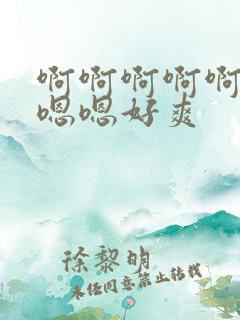 啊啊啊啊啊
嗯嗯好爽
徐黎明
未经同意禁止转载